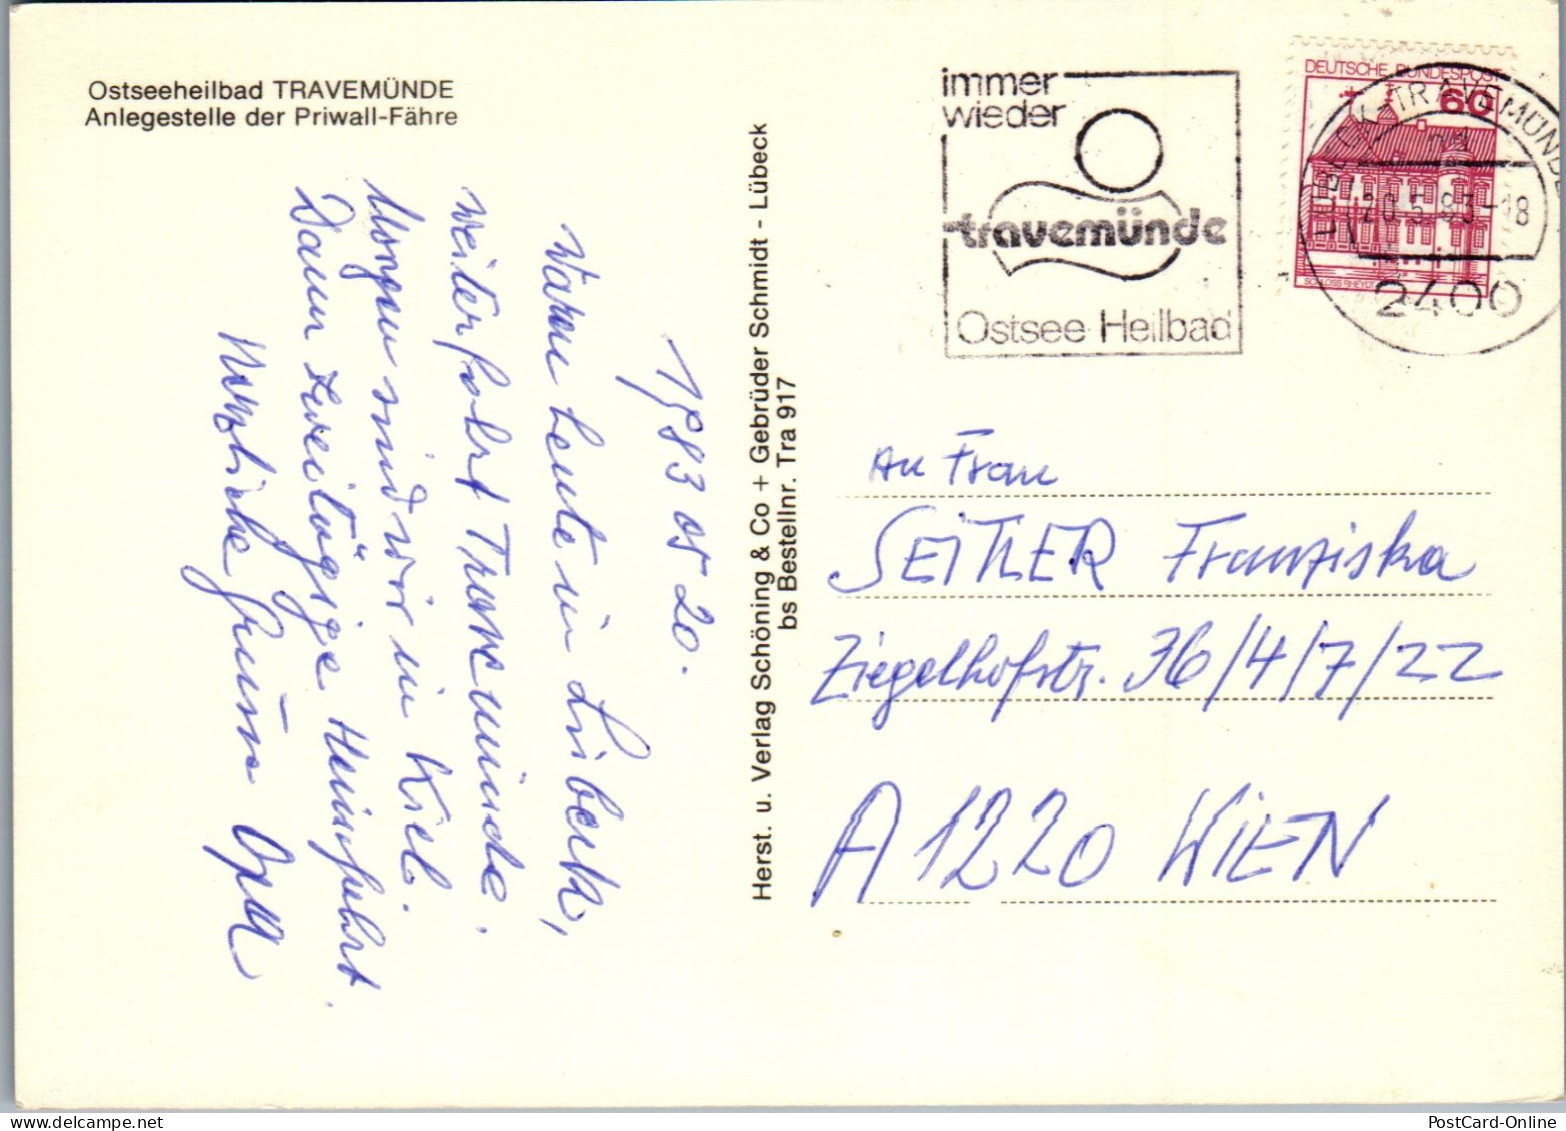 Ostseeheilbad TRAVEMÜNDE
Anlegestelle der Priwall-Fähre
1983 05 20.
Waren heute in Lübeck,
weiterfahrt Travemünde.
Morgen sind wir in Kiel.
Dann zweitägige Heimfahrt.
Herzliche Opa
Herst. u. Verlag Schöning & Co + Gebrüder Schmidt - Lübeck
bs Bestellnr. Tra 917
immer
wieder
travemünde
Ostsee Heilbad
DEUTSCHE BUNDESPOST
60
SCHLOSS RHEYDT
LÜBECK-TRAVEMÜNDE
20.5.83-18
2400
An Frau
SEITLER Franziska
Ziegelhofstr. 36/4/7/22
A 1220 WIEN
PostCard-Online